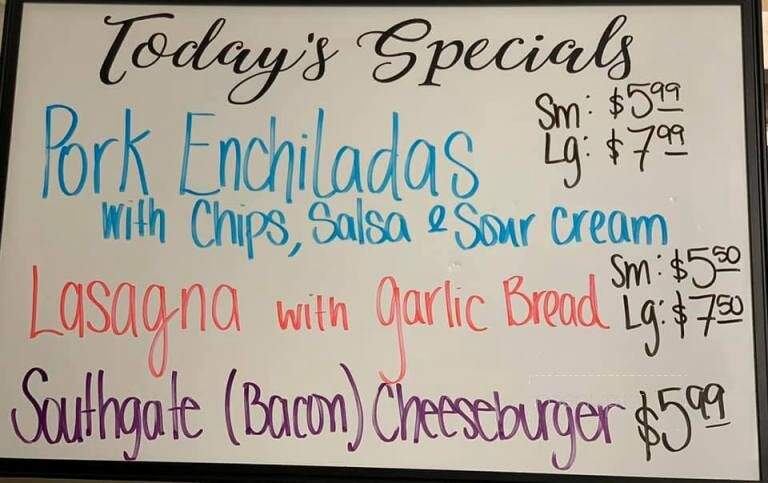 Today's Specials
Pork Enchiladas Sm: $5.99
Lg: $7.99
with Chips, Salsa & Sour Cream
Lasagna with Garlic Bread Sm: $5.50
Lg: $7.50
Southgate (Bacon) Cheeseburger $5.99